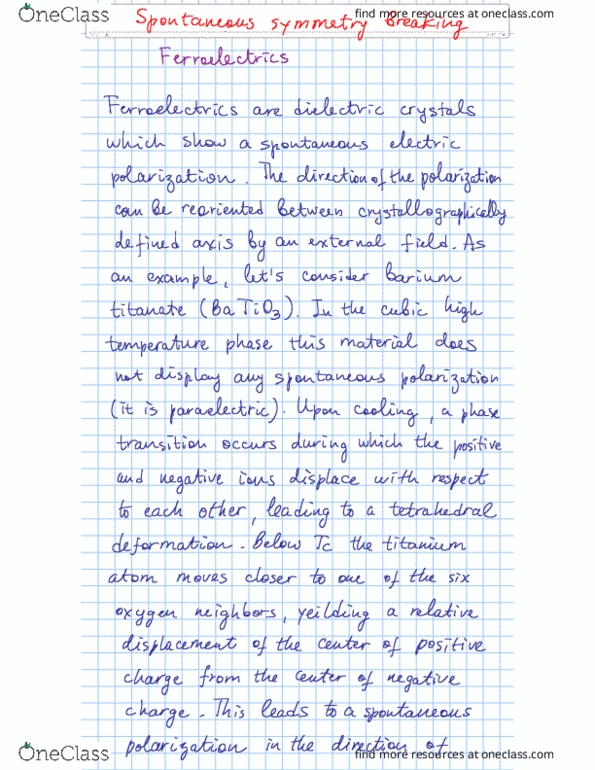 OneClass
find more resources at oneclass.com
Spontaneous symmetry breaking
Ferroelectrics
Ferroelectrics are dielectric crystals
which show a spontaneous electric
polarization. The direction of the polarization
can be reoriented between crystallographically
defined axis by an external field. As
an example, let's consider barium
titanate (BaTiO3). In the cubic high
temperature phase this material does
not display any spontaneous polarization
(it is paraelectric). Upon cooling, a phase
transition occurs during which the positive
and negative ions displace with respect
to each other, leading to a tetrahedral
deformation. Below Tc the titanium
atom moves closer to one of the six
oxygen neighbors, yeilding a relative
displacement of the center of positive
charge from the center of negative
charge. This leads to a spontaneous
polarization in the direction of
OneClass
find more resources at oneclass.com